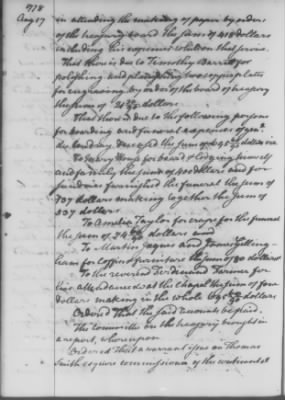 978
Aug 17
in attending the making of paper by order
of the treasury board the sum of 418 dollars
including his expences whilst on that service.
That there is due to Timothy Barrett for
polishing and two copper plates
for engraving by order of the board of treasury
the sum of dollars
That there is due to the following persons
for boarding and funeral expences of genl
du Coudray deceased the sum of dollars viz
To Henry for board & lodging himself
and family the sum of 400 dollars and for
sundries furnished the funeral the sum of
137 dollars making together the sum of
537 dollars
To Amelia Taylor for crape for the funeral
the sum of 24 dollars and
To Martin and
for coffin & furniture the sum of 80 dollars
To the reverend Ferdinand Farmer for
his attendance at the chapel the sum of four
dollars making in the whole dollars
Ordered That the said accounts be paid.
The committee on the treasury brought in
a report, whereupon
Ordered That a warrant issue on Thomas
Smith esquire commissioner of the continental